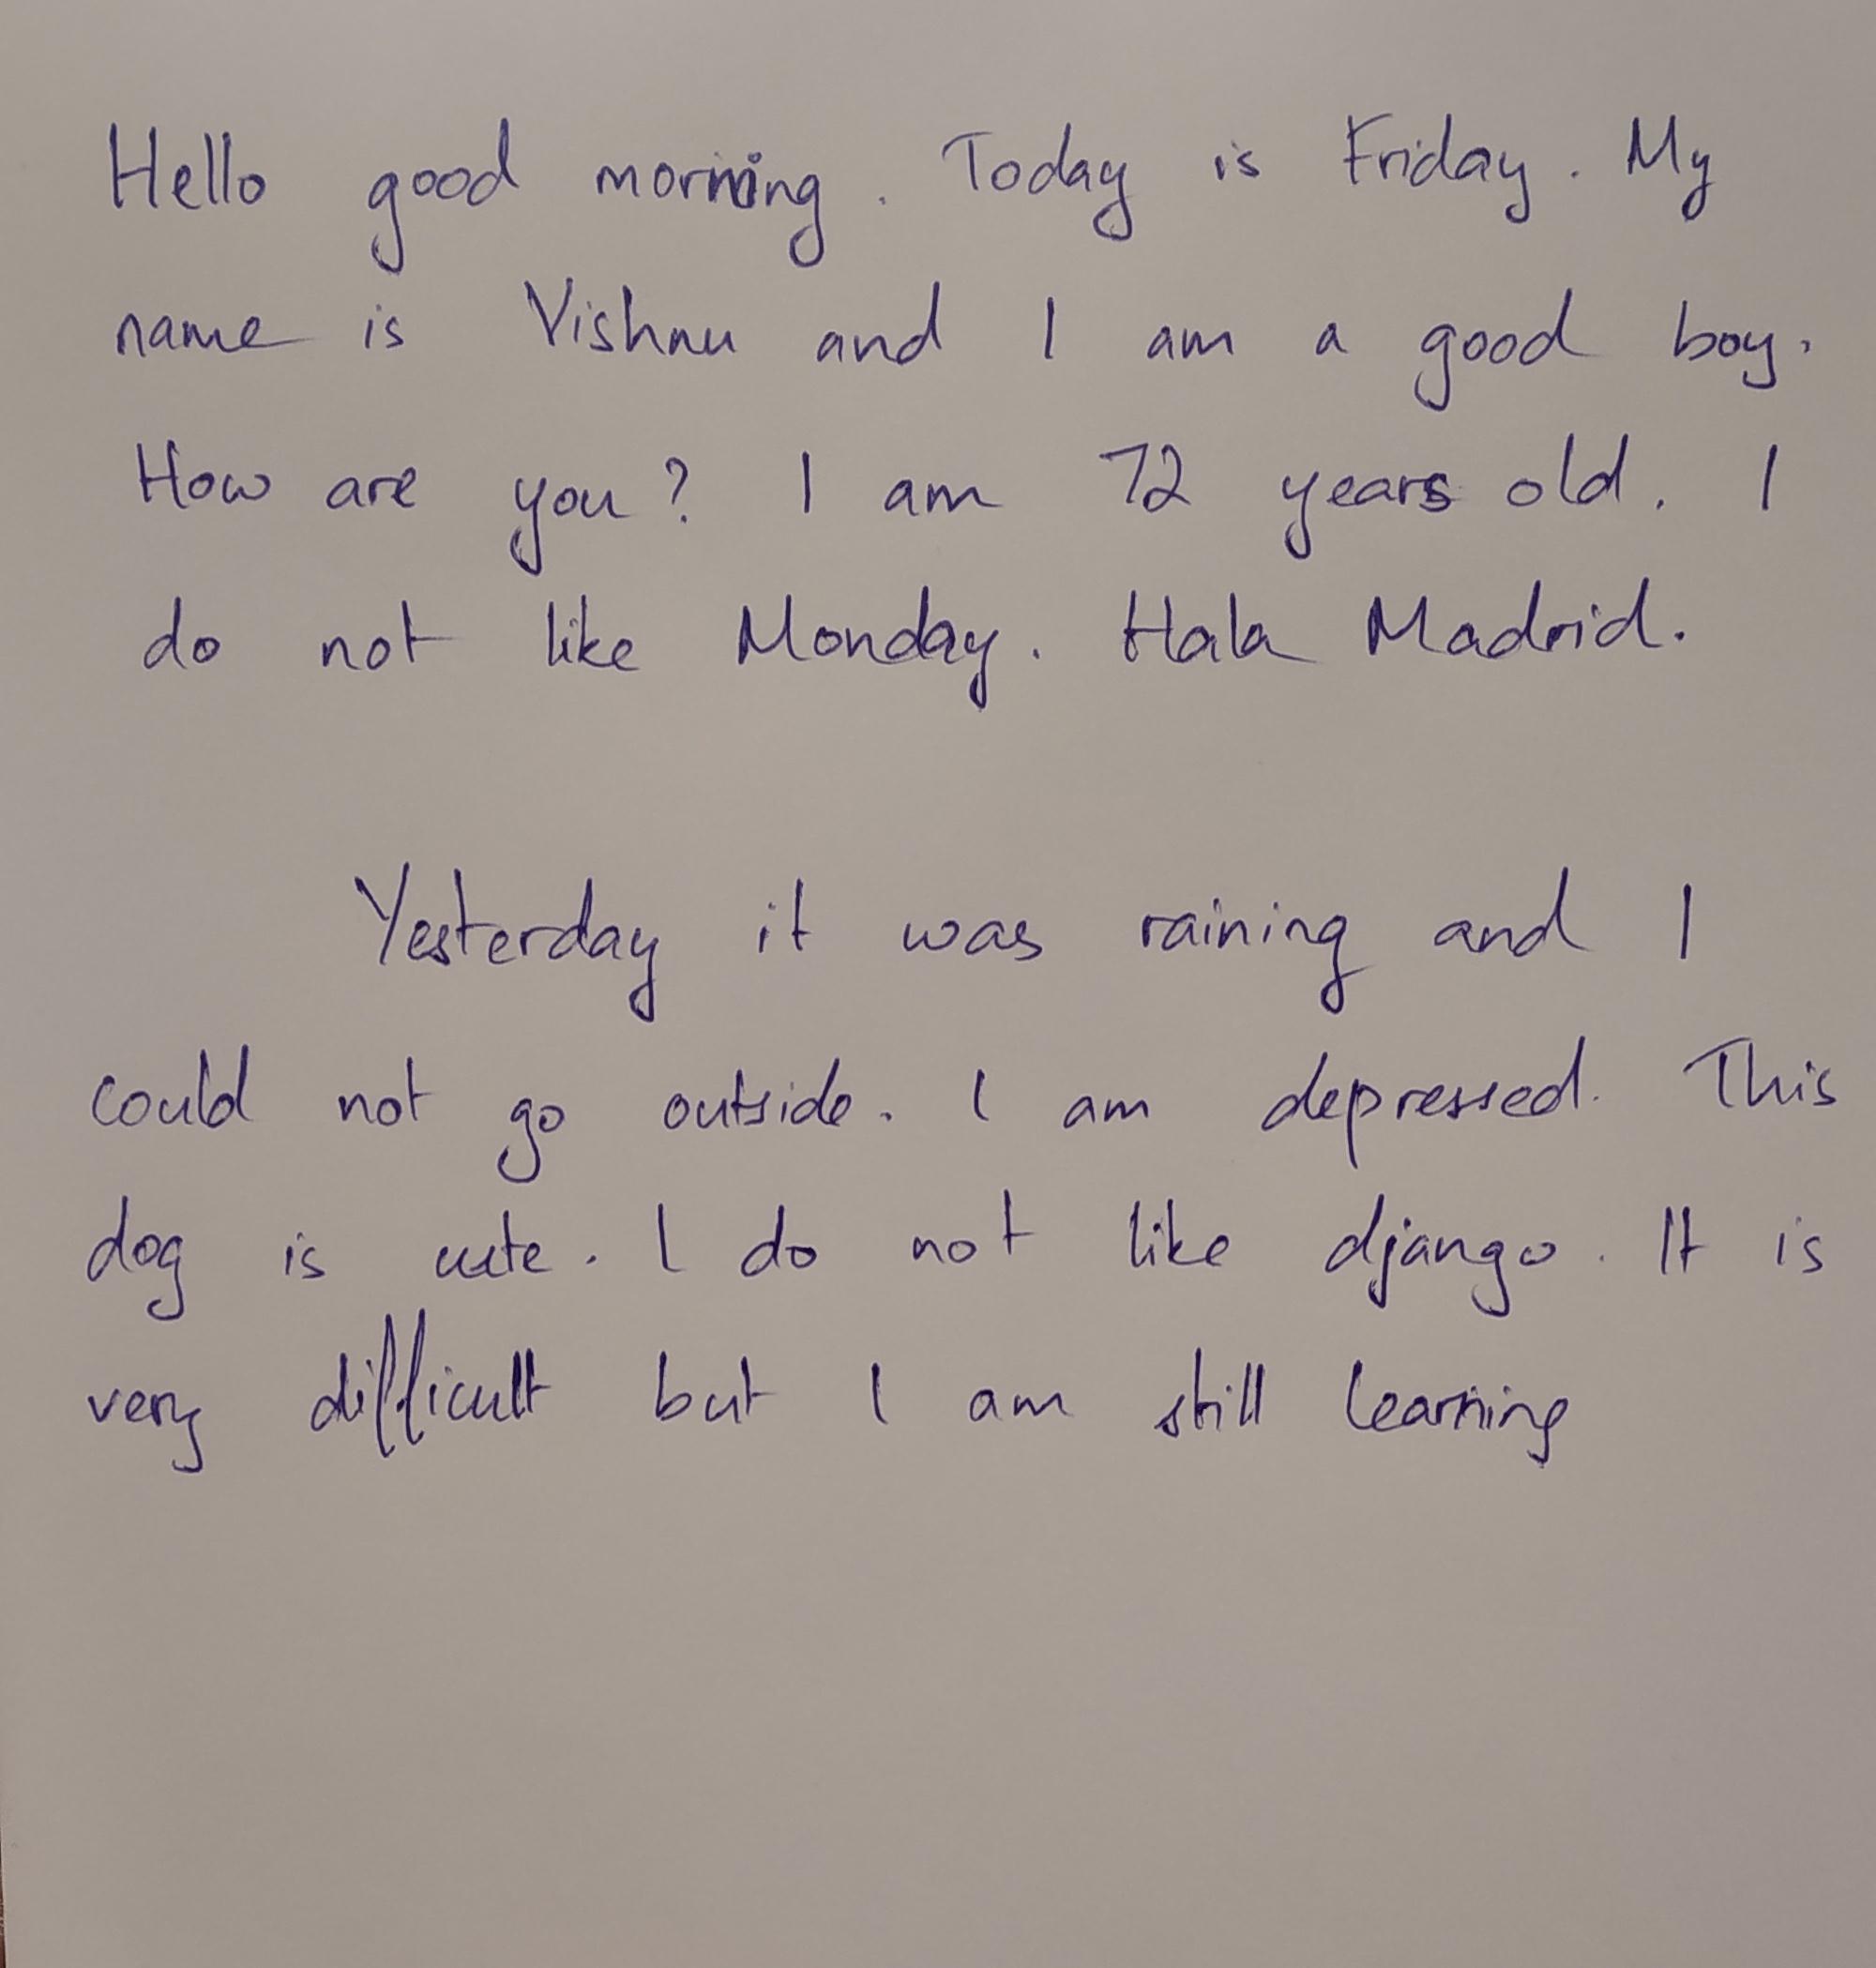 Hello good morning. Today is Friday. My
name is Vishnu and I am a good boy.
How are you? I am 72 years old. I
do not like Monday. Hala Madrid.
Yesterday it was raining and I
could not go outside. I am depressed. This
dog is cute. I do not like django. It is
very difficult but I am still learning